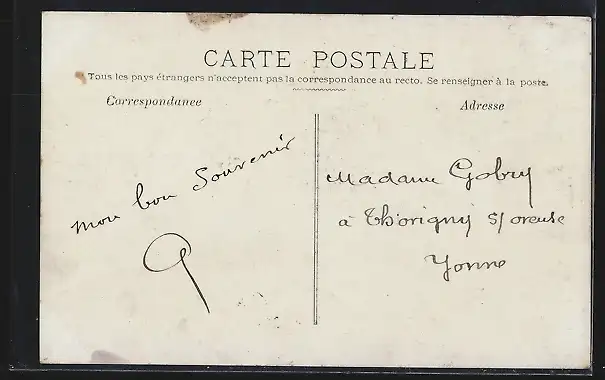 CARTE POSTALE
Tous les pays étrangers n'acceptent pas la correspondance au recto. Se renseigner à la poste.
Correspondance
Adresse
mon bon Souvenir
Madame Gobry
à Thorigny s/oreuse
Yonne